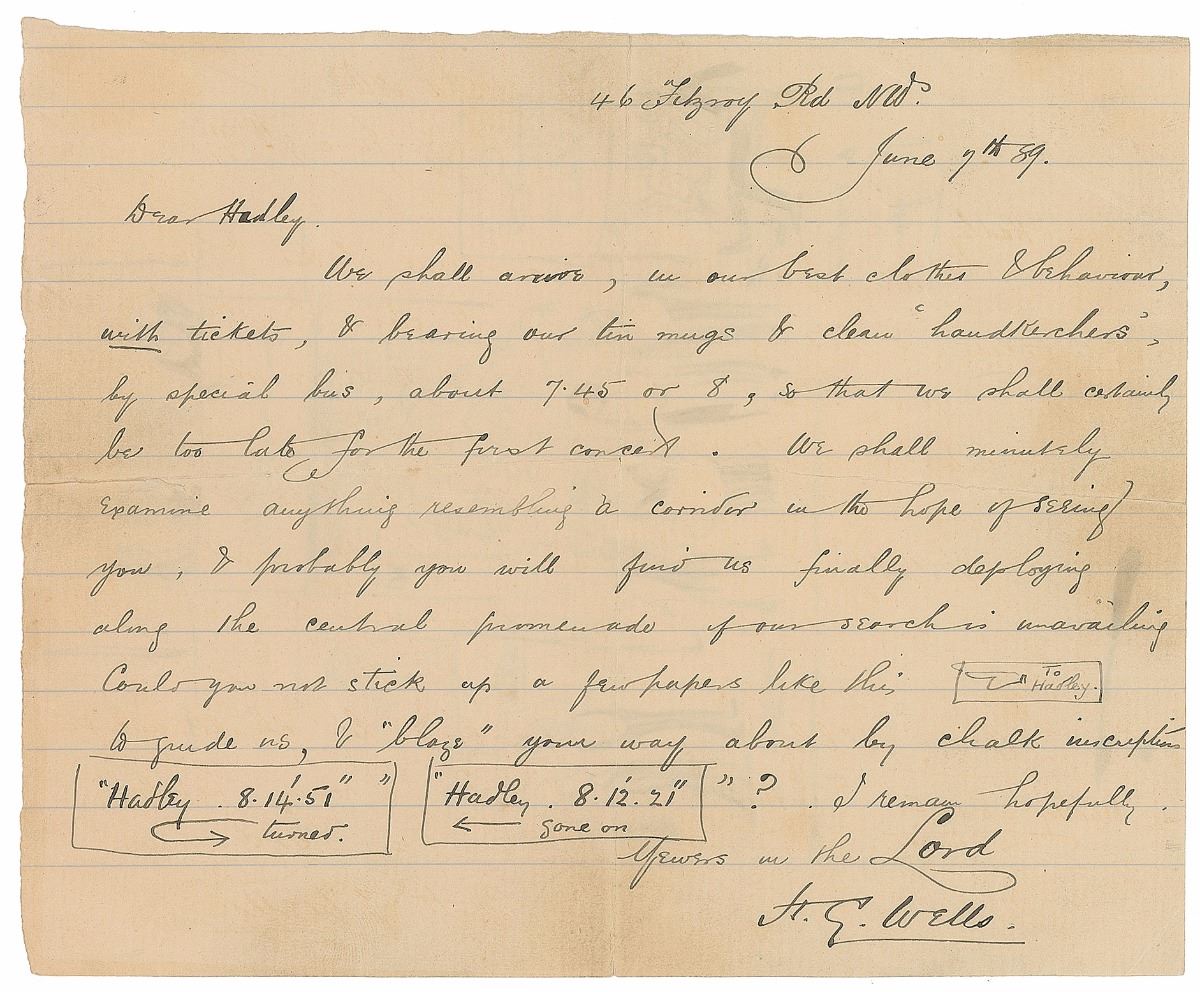 46 Fitzroy Rd NW.
June 7th 89.
Dear Hadley.
We shall arrive, in our best clothes & behaviour,
with tickets, & bearing our tin mugs & clean "handkerchers",
by special bus, about 7.45 or 8, so that we shall certainly
be too late for the first concert. We shall minutely
examine anything resembling a corridor in the hope of seeing
you, & probably you will find us finally deploying
along the central promenade if our search is unavailing
Could you not stick up a few papers like this To Hadley.
to guide us, & "blaze" your way about by chalk inscriptions
"Hadley. 8.14'.51" " "Hadley. 8.12'.21" " ? . I remain hopefully.
turned. gone on
Yewers in the Lord
H. G. Wells.